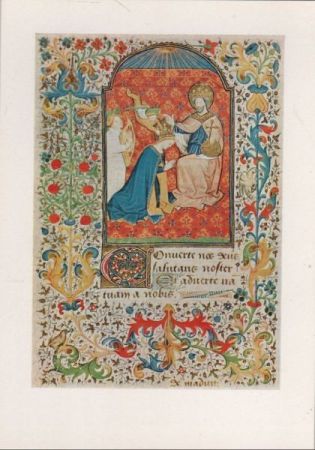 Converte nos deus
salutaris noster
Et averte ira
tuam a nobis